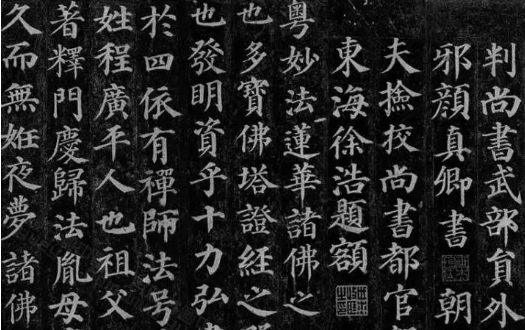 判尚書武部貟外
邪顏真卿書 朝
夫撿挍尚書都官
東海徐浩題額
粵妙法蓮華諸佛之
也多寶佛塔證経之
也發明資乎十力弘
於四依有禪師法号
姓程廣平人也祖父
著釋門慶歸法胤母
久而無姙夜夢諸佛